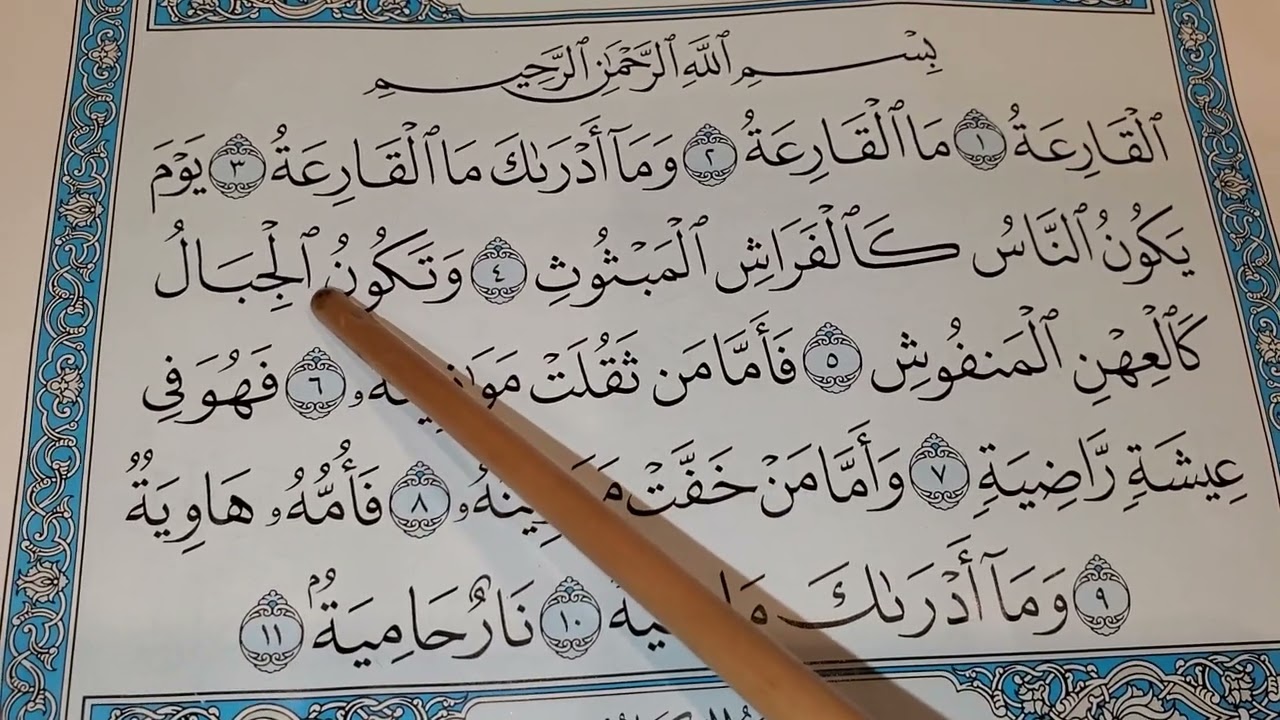 بِسْمِ ٱللَّهِ ٱلرَّحْمَٰنِ ٱلرَّحِيمِ
ٱلْقَارِعَةُ ١ مَا ٱلْقَارِعَةُ ٢ وَمَآ أَدْرَىٰكَ مَا ٱلْقَارِعَةُ ٣ يَوْمَ
يَكُونُ ٱلنَّاسُ كَٱلْفَرَاشِ ٱلْمَبْثُوثِ ٤ وَتَكُونُ ٱلْجِبَالُ
كَٱلْعِهْنِ ٱلْمَنفُوشِ ٥ فَأَمَّا مَن ثَقُلَتْ ٦ فَهُوَ فِى
عِيشَةٍ رَّاضِيَةٍ ٧ وَأَمَّا مَنْ خَفَّتْ ٨ فَأُمُّهُۥ هَاوِيَةٌ
٩ وَمَآ أَدْرَىٰكَ ١٠ نَارٌ حَامِيَةٌۢ ١١